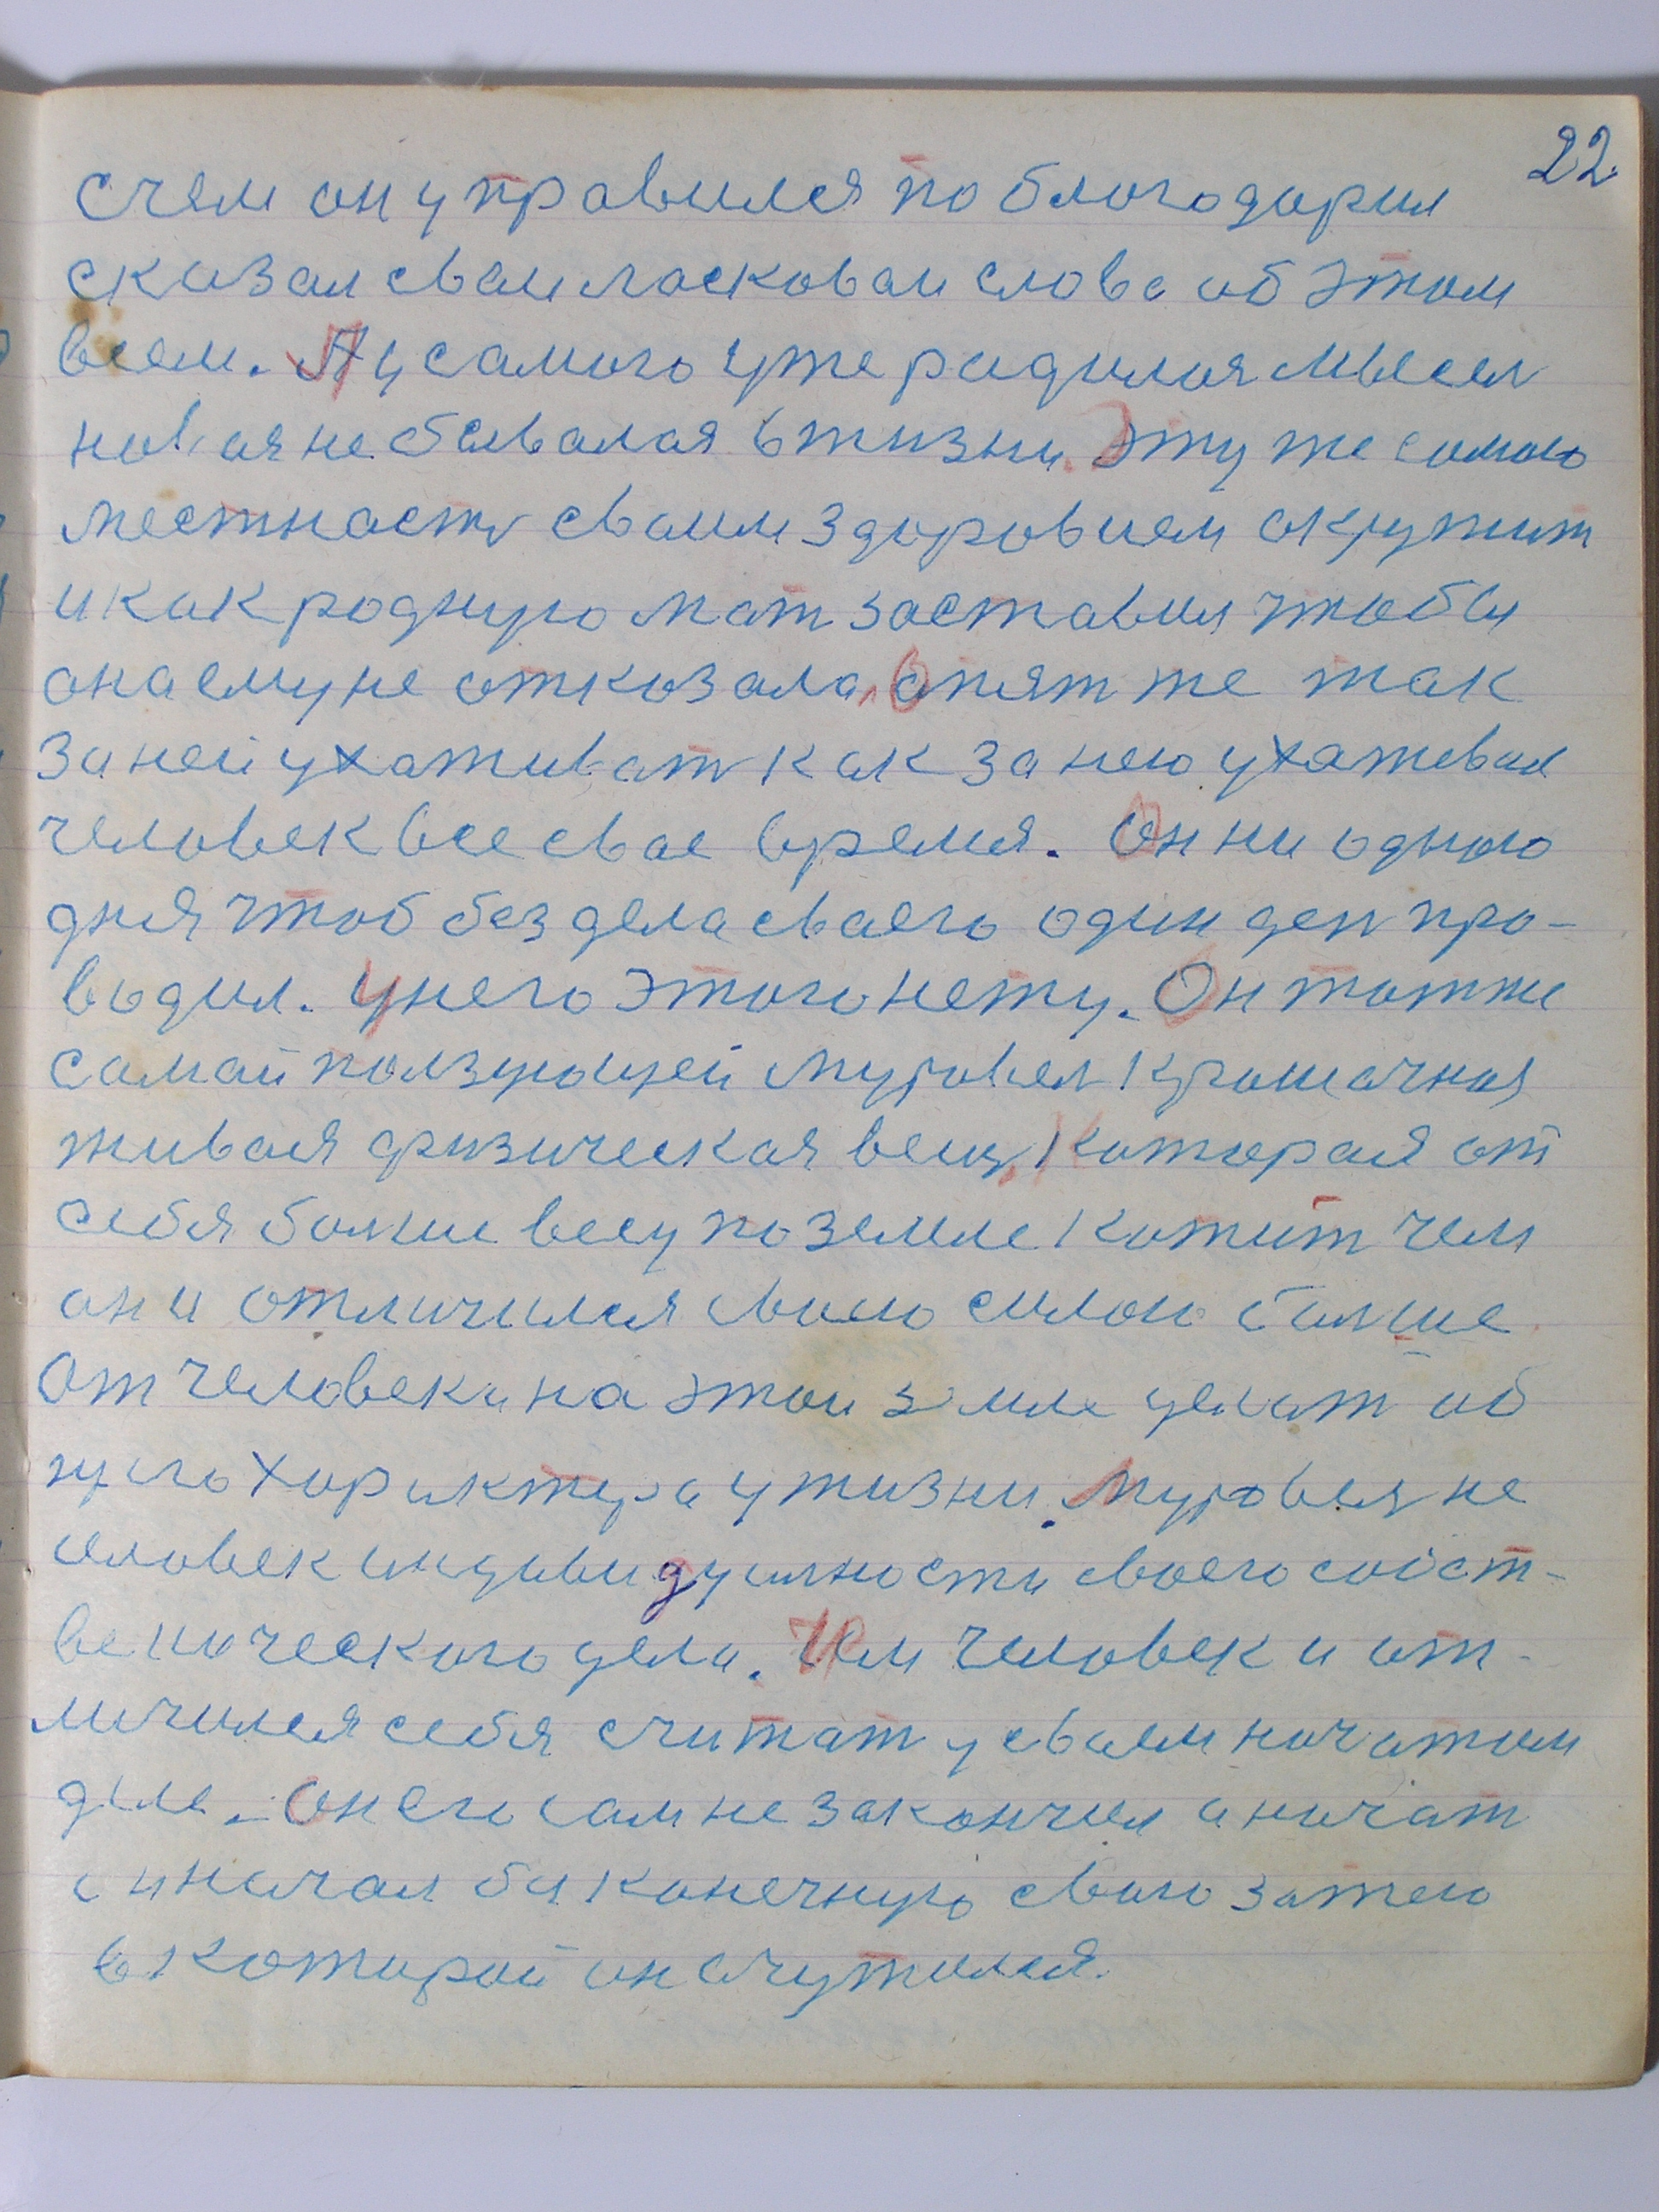 22.
с чем он управился поблогодарил
сказал сваи ласковаи слова об этом
всем. А у самого уже радилая мысел
новая небывалая в жизни. Эту же самою
местность сваим здоровием окружит
и как родную мат заставил чтобы
она ему не отказала, опят же так
за ней ухаживат как за нею ухажевал
человек все свае время. Он ни одного
дня чтоб без дела сваего один ден про-
водил. У него этого нету. Он тотже
самай ползующей муровел крошачная
живая физическая вещ, которая от
себя болше весу по земле котит чем
он и отличился сваю силою болше
от человека на этои земле делат об
щего характера у жизни. Муровел не
человек индивидуалности своего собст-
венического дела. Чем человек и от-
личился себя считат у сваем начатом
деле. Он его сам не закончил а начат
он начал бы конечную сваю затею
в которой он очутился.